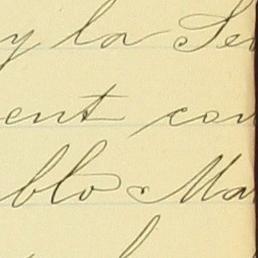 y la Se
ent con
blo Ma